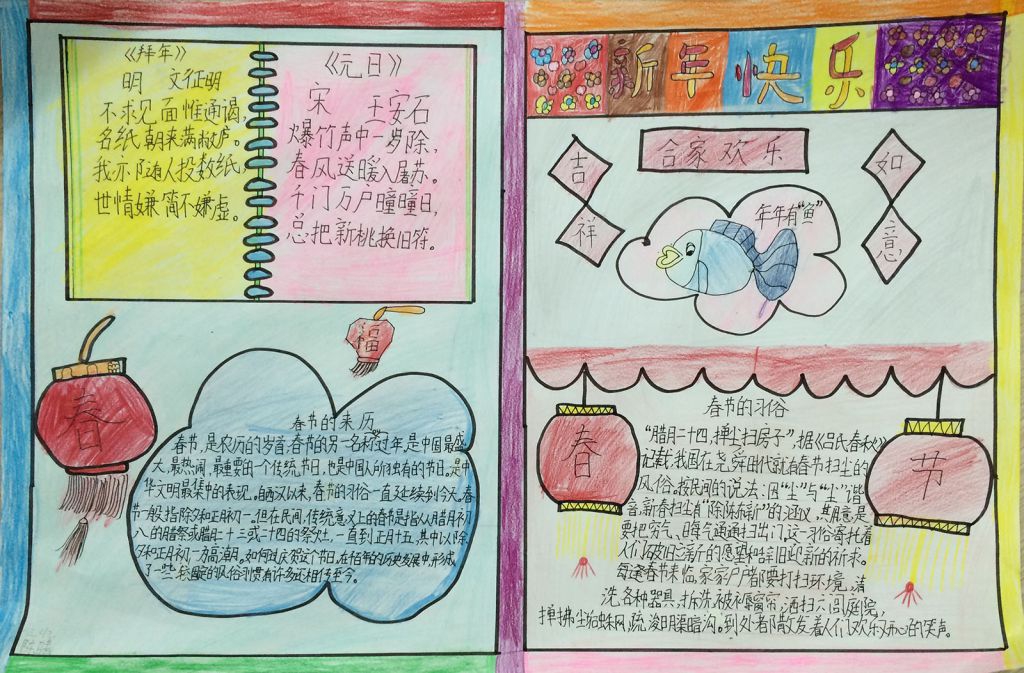 《拜年》
明 文征明
不求见面惟通谒,
名纸朝来满敝庐。
我亦随人投数纸,
世情嫌简不嫌虚。
《元日》
宋 王安石
爆竹声中一岁除,
春风送暖入屠苏。
千门万户曈曈日,
总把新桃换旧符。
春
福
春节的来历
春节,是农历的岁首,春节的另一名称"过年,是中国最盛
大、最热闹、最重要的一个传统节日,也是中国人所独有的节日。是中
华文明最集中的表现。自西汉以来,春节的习俗一直延续到今天。春
节一般指除夕和正月初一。但在民间,传统意义上的春节是指从腊月初
八的腊祭或腊月二十三或二十四的祭灶,一直到正月十五,其中以除
夕和正月初一为高潮。如何过庆贺这个节日,在千百年的历史发展中,形成
了一些较固定的风俗习惯,有许多还相传至今。
新年快乐
吉祥
合家欢乐
如意
年年有"鱼"
春节的习俗
春
节
"腊月二十四,掸尘扫房子",据《吕氏春秋》
记载,我国在尧舜时代就有春节扫尘的
风俗。按民间的说法:因"尘"与"尘"谐
音,新春扫尘有"除陈布新"的涵义,其用意是
要把穷气、晦气通通扫出门。这一习俗寄托着
人们破旧立新的愿望和辞旧迎新的祈求。
每逢春节来临,家家户户都要打扫环境,清
洗各种器具,拆洗被褥窗帘,洒扫六闾庭院,
掸拂尘垢蛛网,疏浚明渠暗沟。到处都散发着人们欢乐开心的笑声。